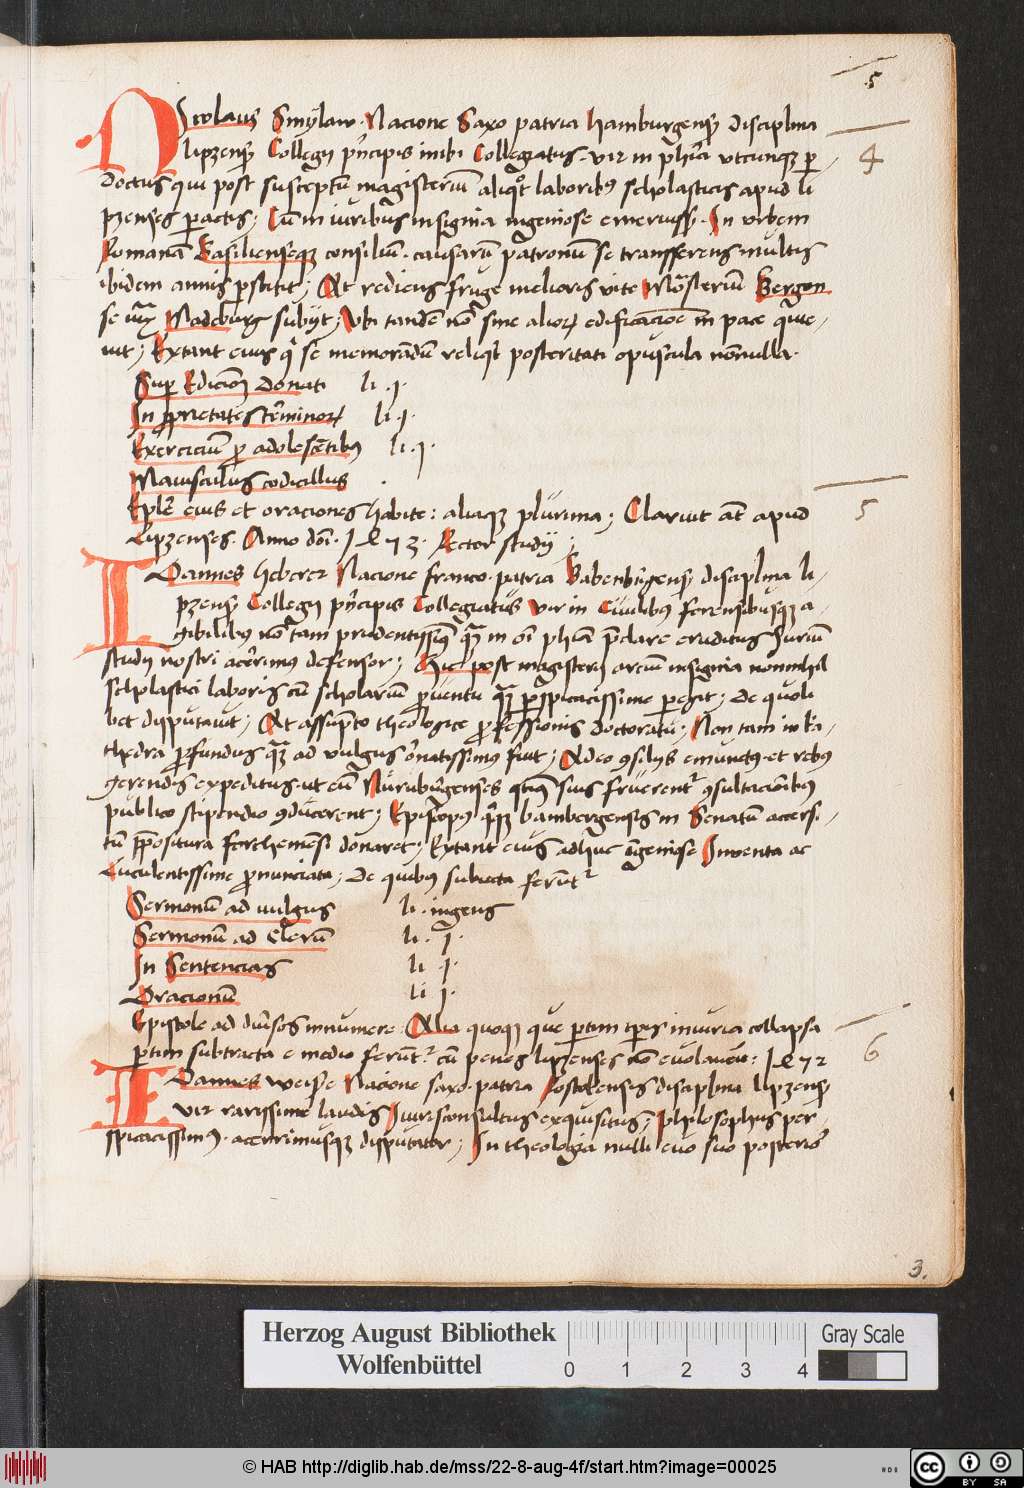 5
Nicolaus Smylaw Nacione Saxo patria Hamburgensis disciplina
4
lipzensis Collegii principis inibi Collegiatus. vir in philosophia utcunque per-
doctus qui post susceptum magisterium aliquot laboribus scholasticis apud li
pzenses peractis; Cum in iuribus insignia ingeniose emeruisset. In urbem
Romanam Basiliensemque consilium. causarum patronum se transferens multis
ibidem annis perstitit; At rediens frugem melioris vite Monasterium Bergen
se iuxta Madeburg subiit; Ubi tandem non sine aliorum edificacione in pace quie-
vit; Extant eius que se memorandum reliquit posteritati opuscula nonnulla.
Super Edicionem Donati li. j.
In proprietates terminorum li. j.
Exercicium pro adolescentibus li. j.
Maiusculus codicillus
Epistole eius et oraciones habite: aliaque plurima; Claruit autem apud
5
Lipzenses. Anno domini. 1473. Rector studii;
Ioannes Heberer Nacione franco. patria Babenbergensis disciplina li-
pzensis Collegii principis Collegiatus vir in Civilibus forensibusque a-
gibilibus non tam prudentissimus quam in omni philosophia preclare eruditus Iurium
studii nostri acerrimus defensor; Hic post magisterii arcium insignia nonnihil
scholastici laboris cum scholarium proventu quam perspicacissime peregit; de quoli
bet disputavit; At assumpto theologice professionis doctoratu; Non tam in ka-
thedra profundus quam ad vulgus ornatissimus fuit; Adeo consiliis emunctus et rebus
gerendis expeditus. ut eum Nurnbergenses quatenus suis fruerentur consultacionibus
publico stipendio conducerent; Episcopus quoque bambergensis in Senatum accersi-
tum prepositura forchemensi donaret; Extant eius adhuc ingeniose Inventa ac
Luculentissime pronunciata; De quibus subiecta feruntur
Sermonum ad vulgus li. ingens
Sermonum ad Clerum li. j.
In Sentencias li j.
Oracionum li j.
Epistole ad diversos innumere. Alia quoque que partim temporis iniuria collapsa
partim subtracta e medio feruntur. cum penes lipzenses non evolavem: 1472
6
Ioannes weisse Nacione saxo. patria Rostokensis disciplina lipzensis
vir rarissime laudis Iurisconsultus exquisitus; Philosophus per
spicacissimus. acerrimusque disputator; In theologia nulli evo suo posterior
3.
Herzog August Bibliothek
Wolfenbüttel
0 1 2 3 4
Gray Scale
© HAB http://diglib.hab.de/mss/22-8-aug-4f/start.htm?image=00025
HAB
cc BY SA